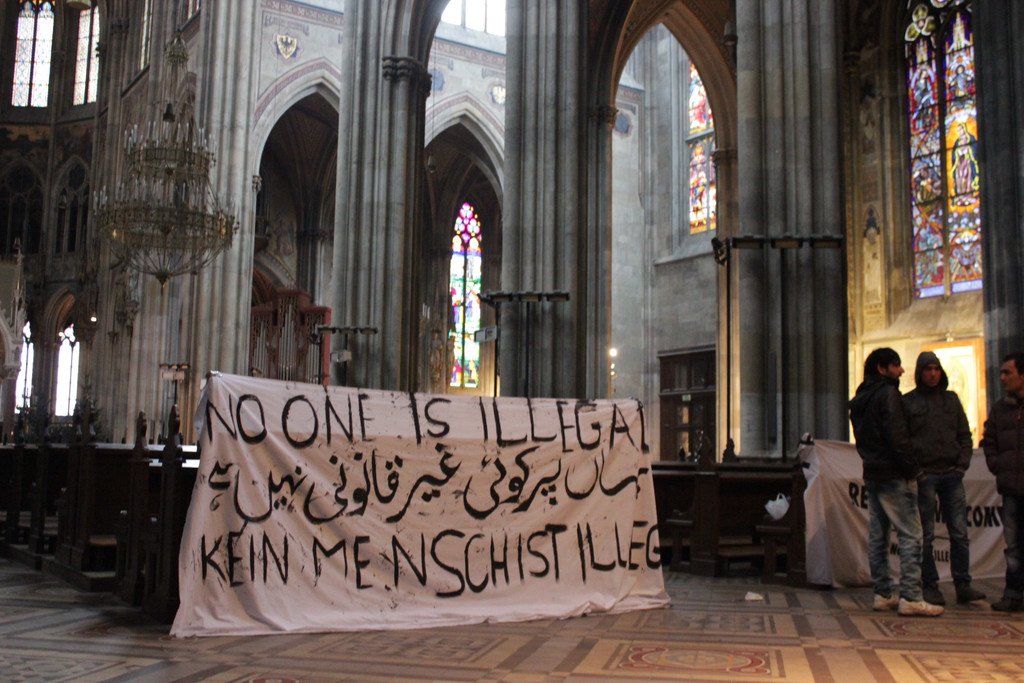 NO ONE IS ILLEGAL
یہاں پر کوئی غیر قانونی نہیں ہے
KEIN MENSCH IST ILLEG
RE COM